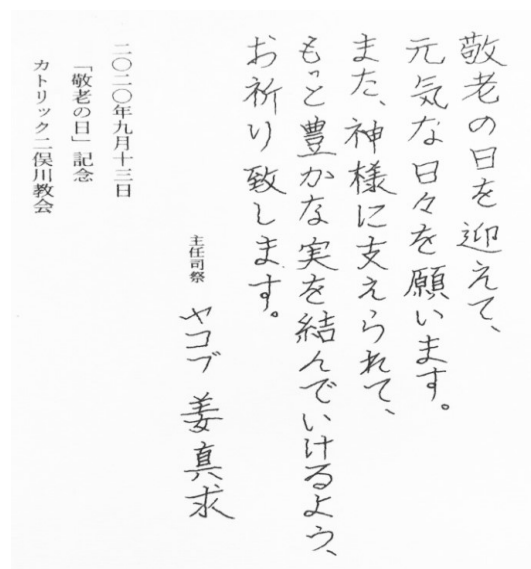 敬老の日を迎えて、
元気な日々を願います。
また、神様に支えられて、
もっと豊かな実を結んでいけるよう、
お祈り致します。
主任司祭 ヤコブ 姜真求
二〇二〇年九月十三日
「敬老の日」記念
カトリック二俣川教会